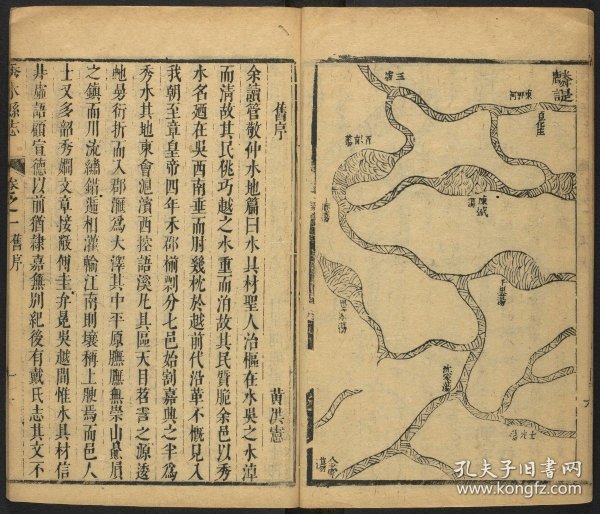 舊序
黃洪憲
余讀管敬仲水地篇曰水具材聖人治樞在水吳之水淖
而清故其民佻巧越之水重而洎故其民質脆余邑以秀
水名廼在吳西南垂而肘幾枕於越前代沿革不慨見入
我朝至章皇帝四年禾郡剖分七邑始割嘉興之半為
秀水其地東會滬瀆西控語溪左具區天目苕霅之源透
虵曼衍折而入郡滙為大澤其中平原膴膴無崇山
之鎮而川流繡錯迤相灌輸江南則壤稱上腴焉而邑人
士又多韶秀嫺文章按轂傳圭弁冕吳越間惟水具材信
非虛語顧宣德以前猶隸嘉無别紀後有戴氏志其文不
秀水縣志 卷之一 舊序
孔夫子旧书网
www.kongfz.com